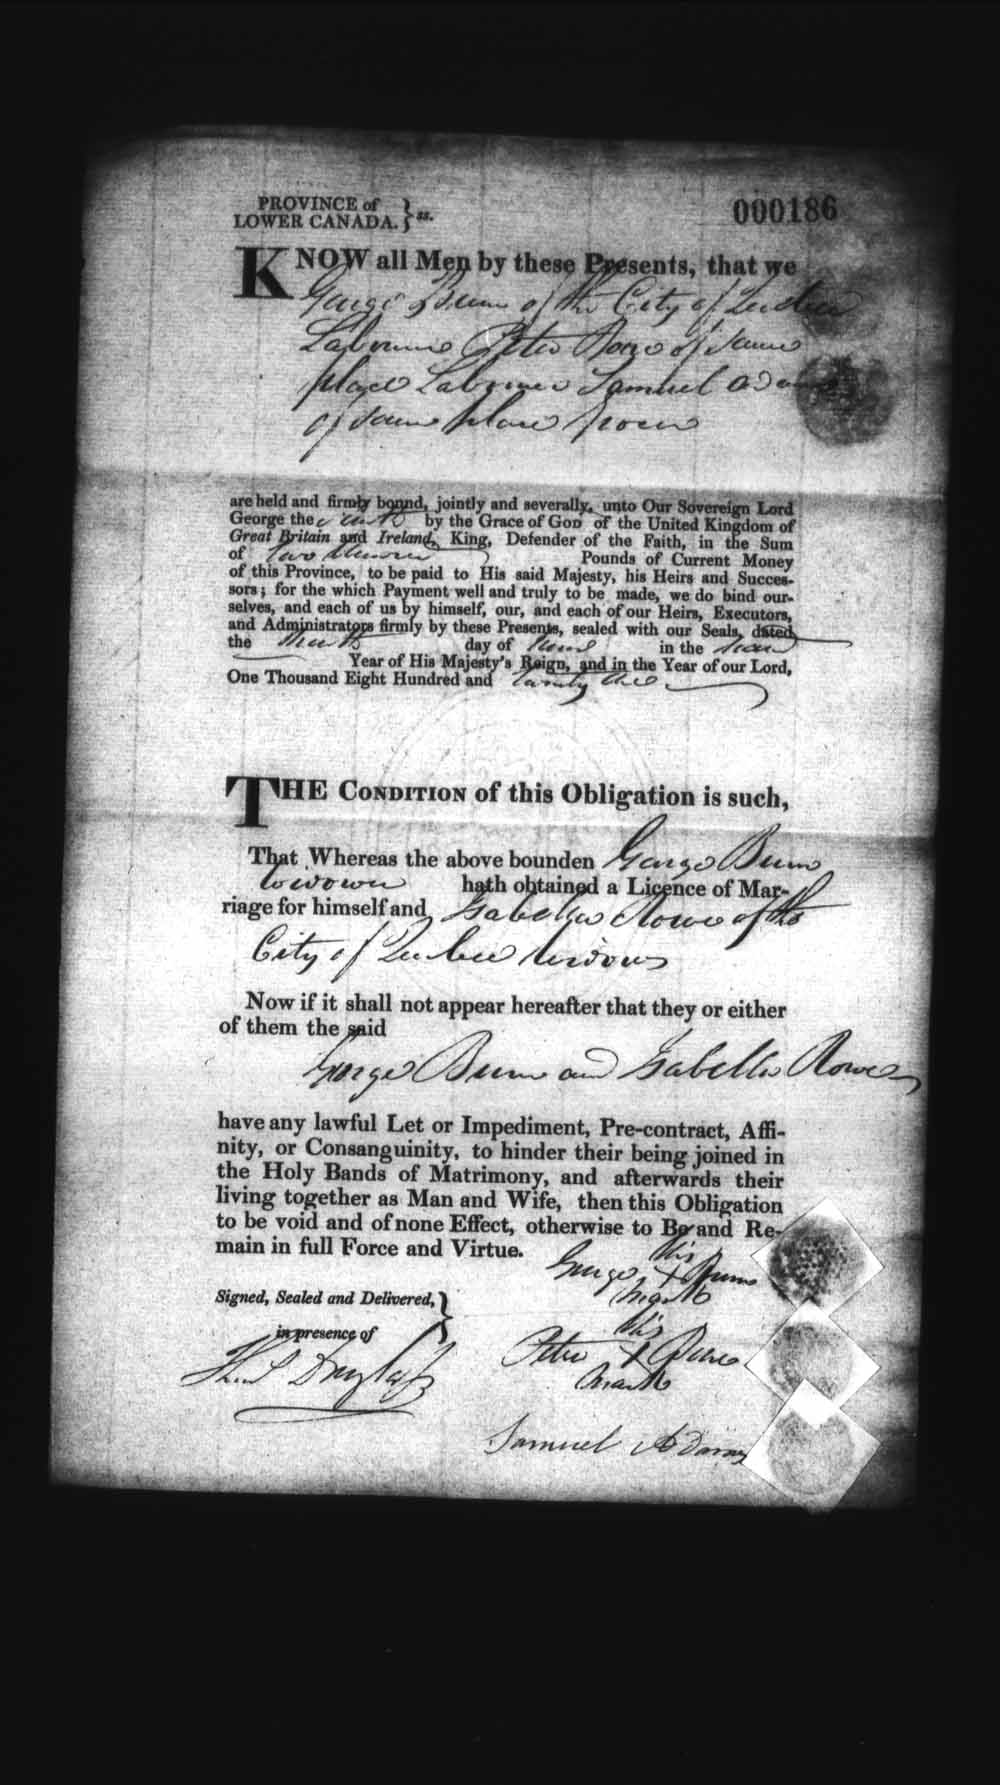 PROVINCE of
LOWER CANADA. } ss.
000186
KNOW all Men by these Presents, that we
George Burns of the City of Quebec
Labourer Peter of same
place Labourer Samuel Adams
of same place
are held and firmly bound, jointly and severally, unto Our Sovereign Lord
George the fourth by the Grace of GOD of the United Kingdom of
Great Britain and Ireland, King, Defender of the Faith, in the Sum
of two Pounds of Current Money
of this Province, to be paid to His said Majesty, his Heirs and Succes-
sors; for the which Payment well and truly to be made, we do bind our-
selves, and each of us by himself, our, and each of our Heirs, Executors,
and Administrators firmly by these Presents, sealed with our Seals, dated
the day of in the
Year of His Majesty's Reign, and in the Year of our Lord,
One Thousand Eight Hundred and twenty
THE CONDITION of this Obligation is such,
That Whereas the above bounden George Burns
widower hath obtained a Licence of Mar-
riage for himself and Isabella Rowe of the
City of Quebec widow
Now if it shall not appear hereafter that they or either
of them the said
George Burns and Isabella Rowe
have any lawful Let or Impediment, Pre-contract, Affi-
nity, or Consanguinity, to hinder their being joined in
the Holy Bands of Matrimony, and afterwards their
living together as Man and Wife, then this Obligation
to be void and of none Effect, otherwise to Be and Re-
main in full Force and Virtue.
his
George + Burns
mark
Signed, Sealed and Delivered, }
in presence of
his
Peter +
mark
Samuel Adams